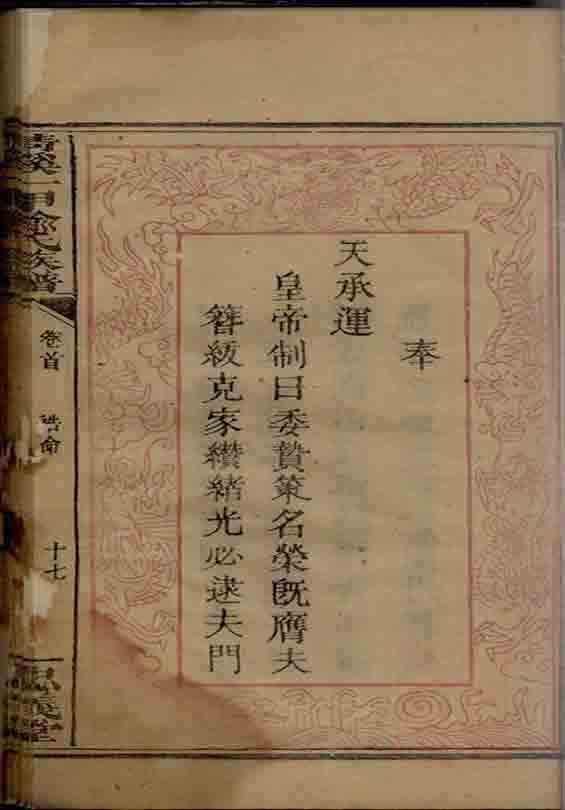 奉
天承運
皇帝制曰委贄策名榮旣膺夫
簪紱克家纘緒光必逮夫門
一甲俞氏族譜
卷首
誥命
十七